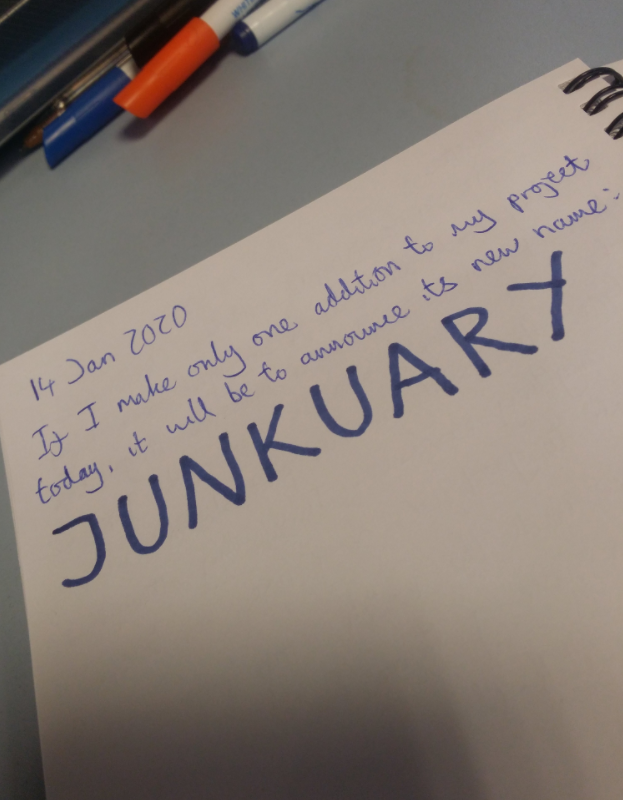 14 Jan 2020
If I make only one addition to my project
today, it will be to announce its new name:
JUNKUARY